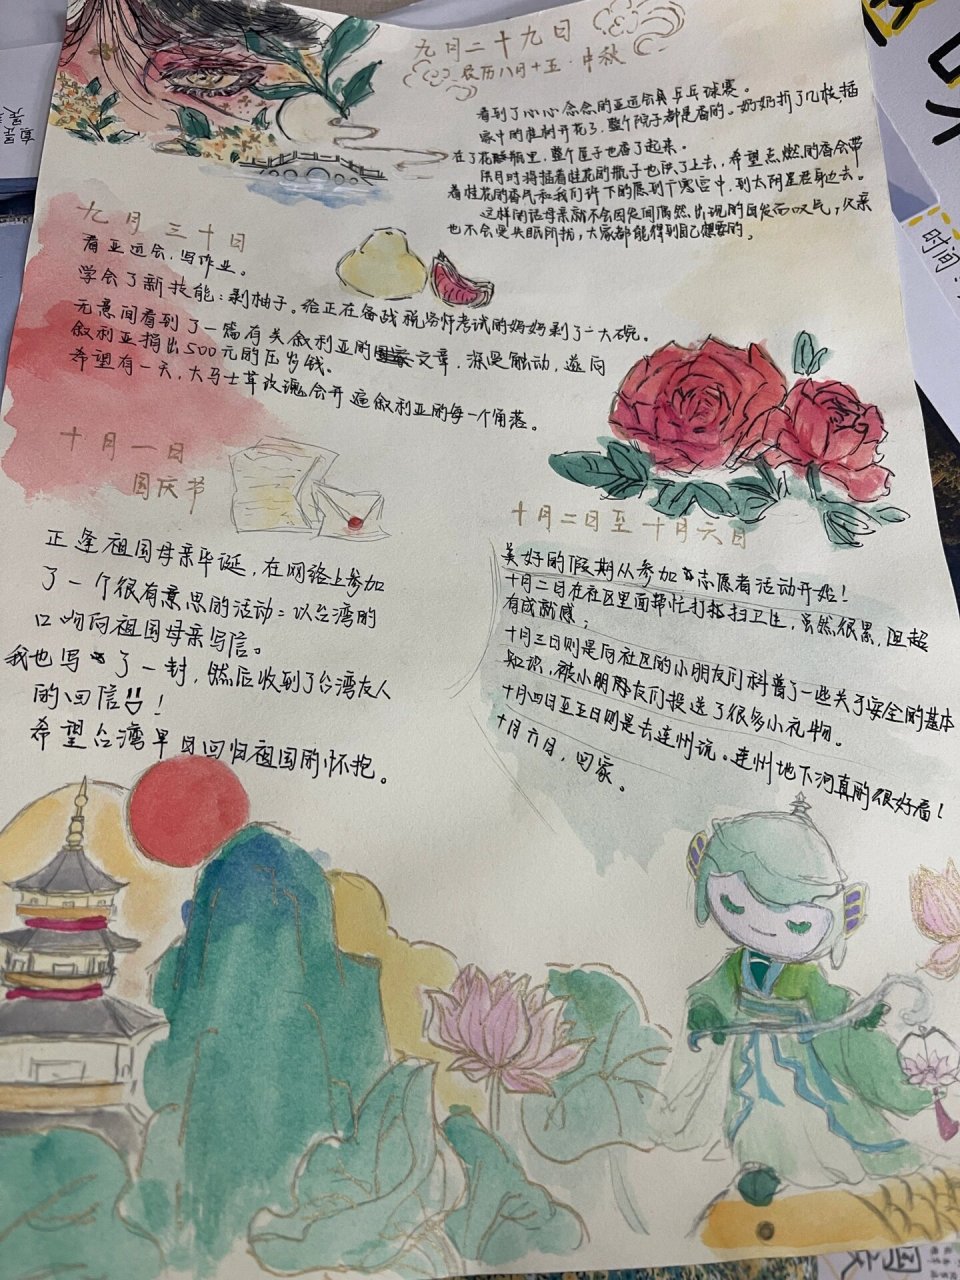 九月二十九日
农历八月十五·中秋
看到了心心念念的亚运会兵乓球赛。
家中的桂树开花了，整个院子都是香的。奶奶折了几枝插
在了花瓶里，整个屋子也香了起来。
供月时将插着桂花的瓶子也供了上去，希望点燃的香会带
着桂花的香气和我们许下的愿到广寒宫中，到太阴星君身边去。
这样的话母亲就不会因发间偶然出现的白发而叹气，父亲
也不会受失眠所扰，大家都能得到自己想要的。
九月三十日
看亚运会，写作业。
学会了新技能：剥柚子。给正在备战税务师考试的妈妈剥了一大碗。
无意间看到了一篇有关叙利亚的文章，深受触动，遂向
叙利亚捐出500元的压岁钱。
希望有一天，大马士革玫瑰会开遍叙利亚的每一个角落。
十月一日
国庆节
正逢祖国母亲华诞，在网络上参加
了一个很有意思的活动：以台湾的
口吻向祖国母亲写信。
我也写了一封，然后收到了台湾友人
的回信！
希望台湾早日回归祖国的怀抱。
十月二日至十月六日
美好的假期从参加志愿者活动开始！
十月二日在社区里面帮忙打扫卫生，虽然很累，但超
有成就感；
十月三日则是向社区的小朋友们科普了一些关于安全的基本
知识，被小朋友们投送了很多小礼物。
十月四日至五日则是去连州玩。连州地下河真的很好看！
十月六日，回家。
时间